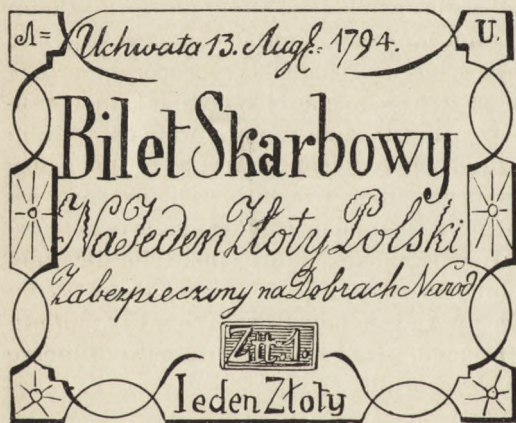 A= Uchwała 13. Augſ: 1794. U.
Bilet Skarbowy
Na Jeden Złoty Polski
Zabezpieczony na Dobrach Narod
Złł: 1.
Ieden Złoty